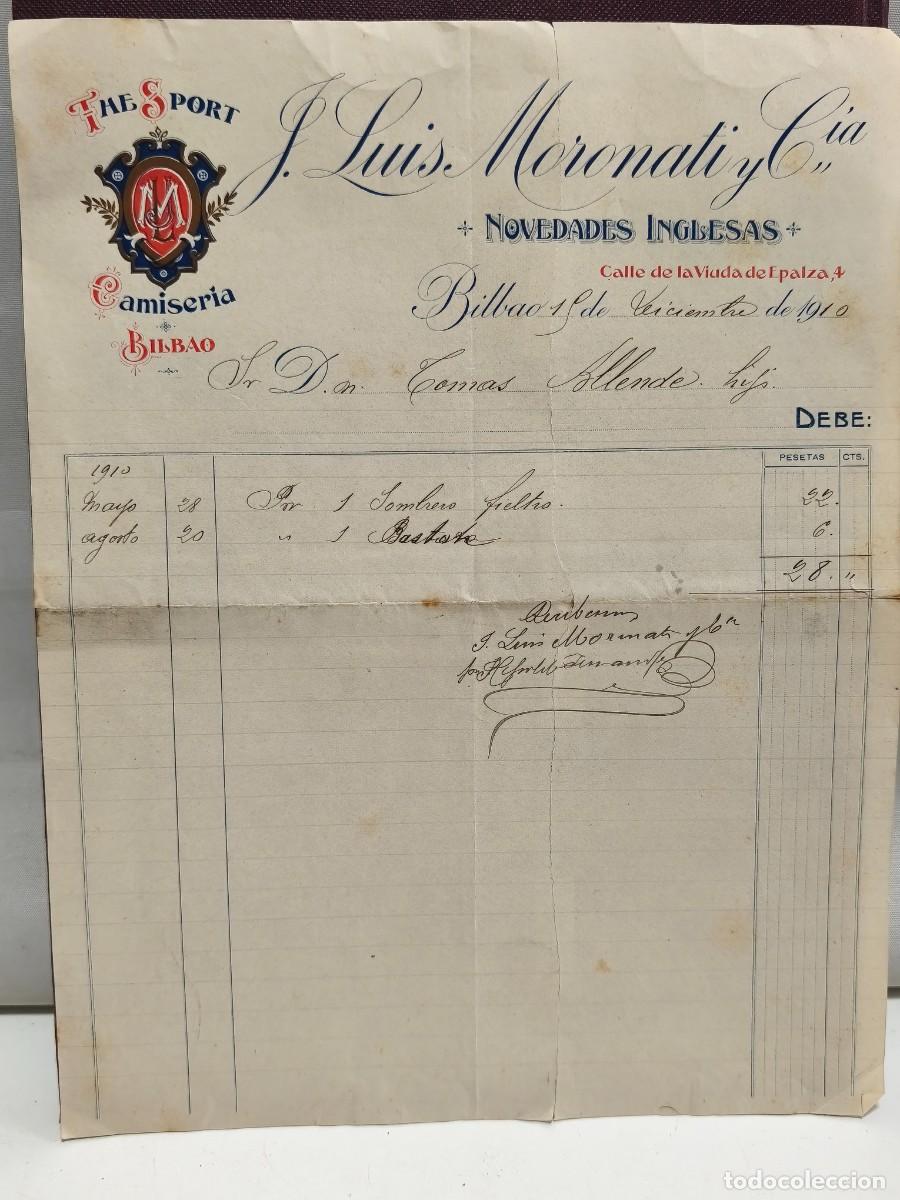 The Sport
J. Luis Moronati y Cía
Novedades Inglesas
Calle de la Viuda de Epalza, 4
Camiseria
Bilbao
Bilbao 15 de Diciembre de 1910
Sr D.n. Tomas Allende. hijo.
DEBE:
PESETAS CTS.
1910
Mayo 28 Por 1 Sombrero fieltro. 22.
agosto 20 " 1 Baston 6.
28. "
Recibimos
J. Luis Moronati y Cª
todocoleccion